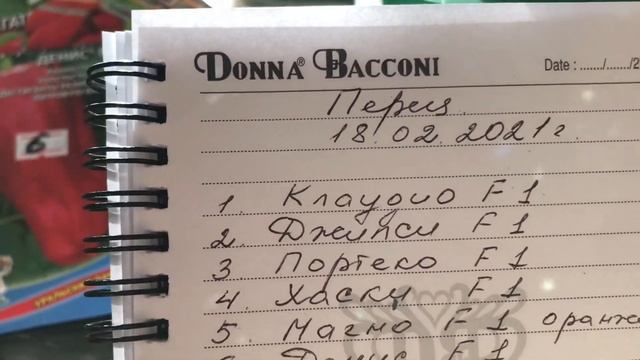 DONNA® BACCONI
Date : ....../....../2
Перец
18.02.2021г
1. Клаудио F1
2. Джипси F1
3 Портеко F1
4. Хаски F1
5 Магно F1 оранж
6 Денис F1
ДЕНИС
6